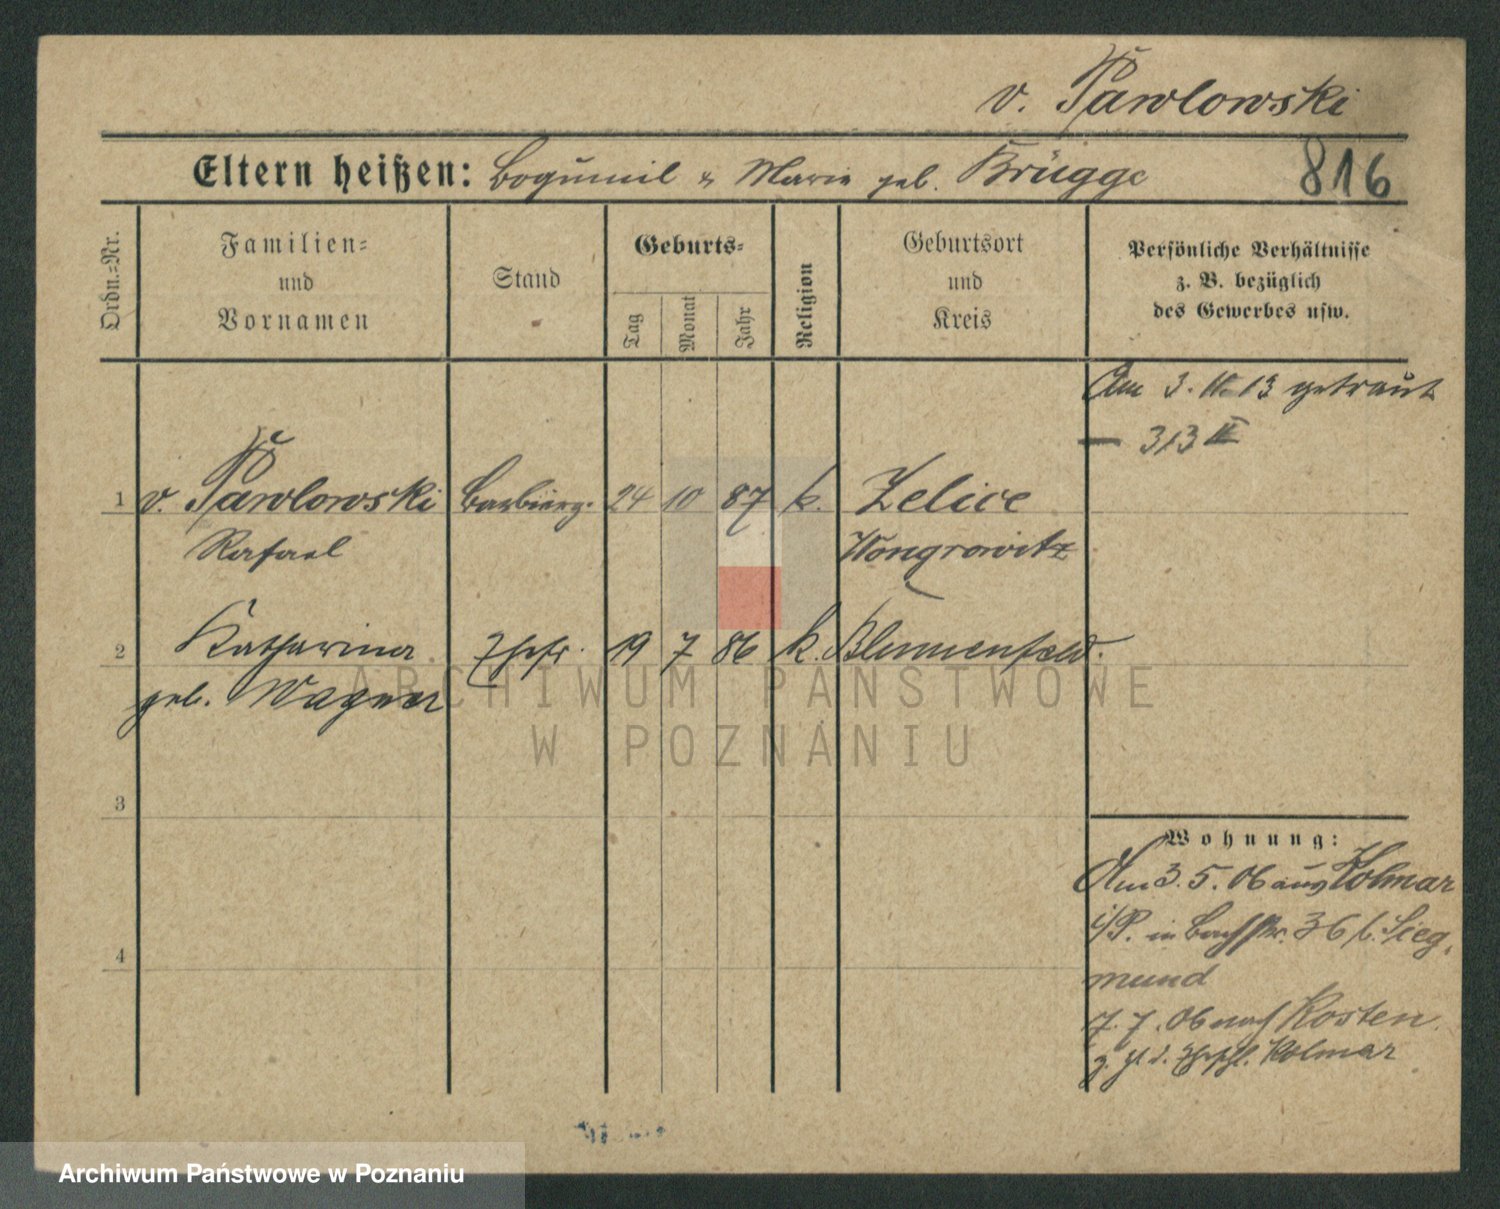 v. Pawlowski
Eltern heißen: Bogumil & Marie geb. Brügge
816
Ordn.=Nr.
Familien=
und
Vornamen
Stand
Geburts=
Tag
Monat
Jahr
Religion
Geburtsort
und
Kreis
Persönliche Verhältnisse
z. B. bezüglich
des Gewerbes usw.
Am 3. 13 getraut
313 II
1 v. Pawlowski 24 10 87 k. Zelice
Rafael Wongrowitz
2 Katharina Ehefr. 19 7 86 k. Blumenfeld.
geb. Wagner
3
4
Wohnung:
Am 3. 5. 06 aus Kolmar
i/P. in Bachstr. 36 b. Sieg
mund
7. 7. 06 nach Kosten
Kolmar
ARCHIWUM PAŃSTWOWE
W POZNANIU
Archiwum Państwowe w Poznaniu